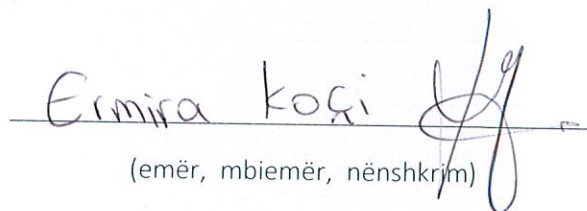 Ermira Koçi
(emër, mbiemër, nënshkrim)